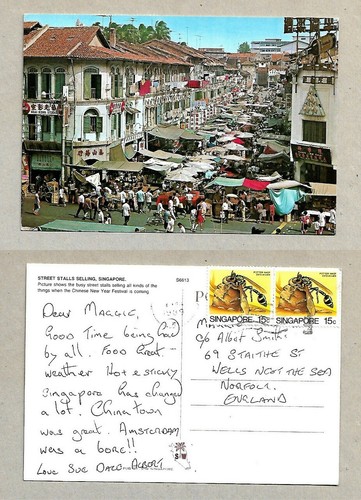 STREET STALLS SELLING, SINGAPORE.
Picture shows the busy street stalls selling all kinds of the
things when the Chinese New Year Festival is coming
S6613
Dear MAGGIE,
Good Time being had
by all. Food Great -
weather Hot & sticky
Singapore has changed
a lot. Chinatown
was great. AMSTERDAM
was a bore!!
Love SUE DAVE ALBERT
POTTER WASP
POTTER WASP
SINGAPORE 15c
SINGAPORE 15c
c/o Albert Smith
69 STAITHE ST
WELLS NEXT THE SEA
NORFOLK.
ENGLAND